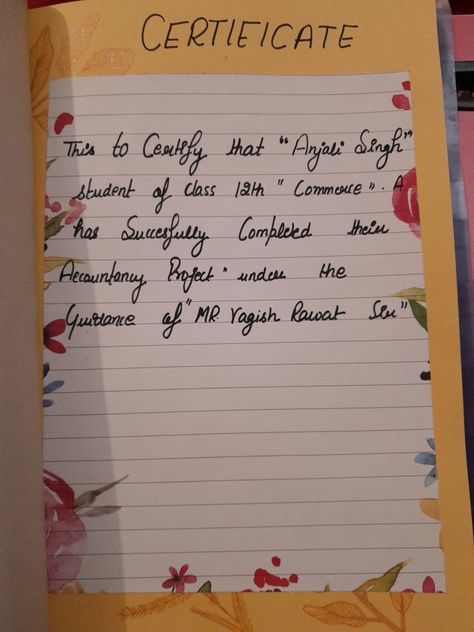 CERTIFICATE
This to Certify that "Anjali Singh"
student of class 12th "Commerce". A
has Succesfully Completed their
Accountancy Project" under the
Guidance of "MR Vagish Rawat Sir"